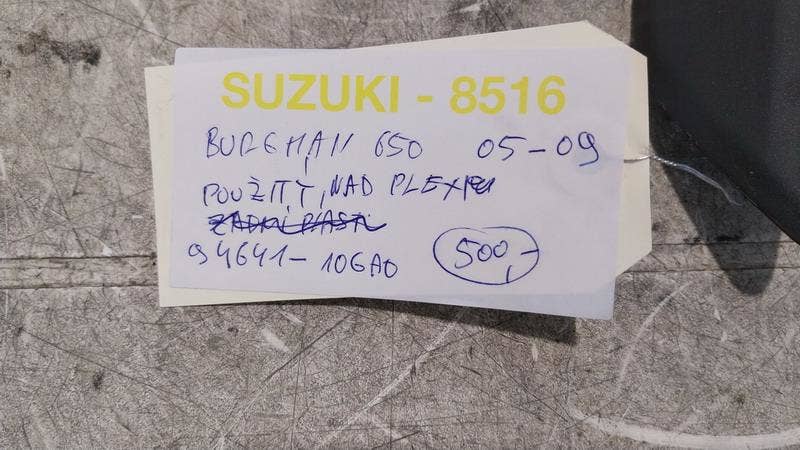 SUZUKI - 8516
BURGMAN 650 05-09
POUŽITÝ, NAD PLEXI
ZADNÍ PLAST
94641-10GA0 500,-